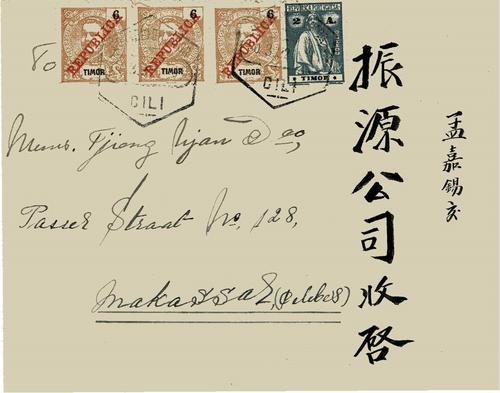 6 6 6 2 A
REPUBLICA REPUBLICA REPUBLICA
TIMOR TIMOR TIMOR TIMOR
DILI DILI
To
Messrs. Tjiong Njan & Co,
Passer Straat No, 128,
Makassar, (Celebes)
振源公司收啓
孟嘉錫交